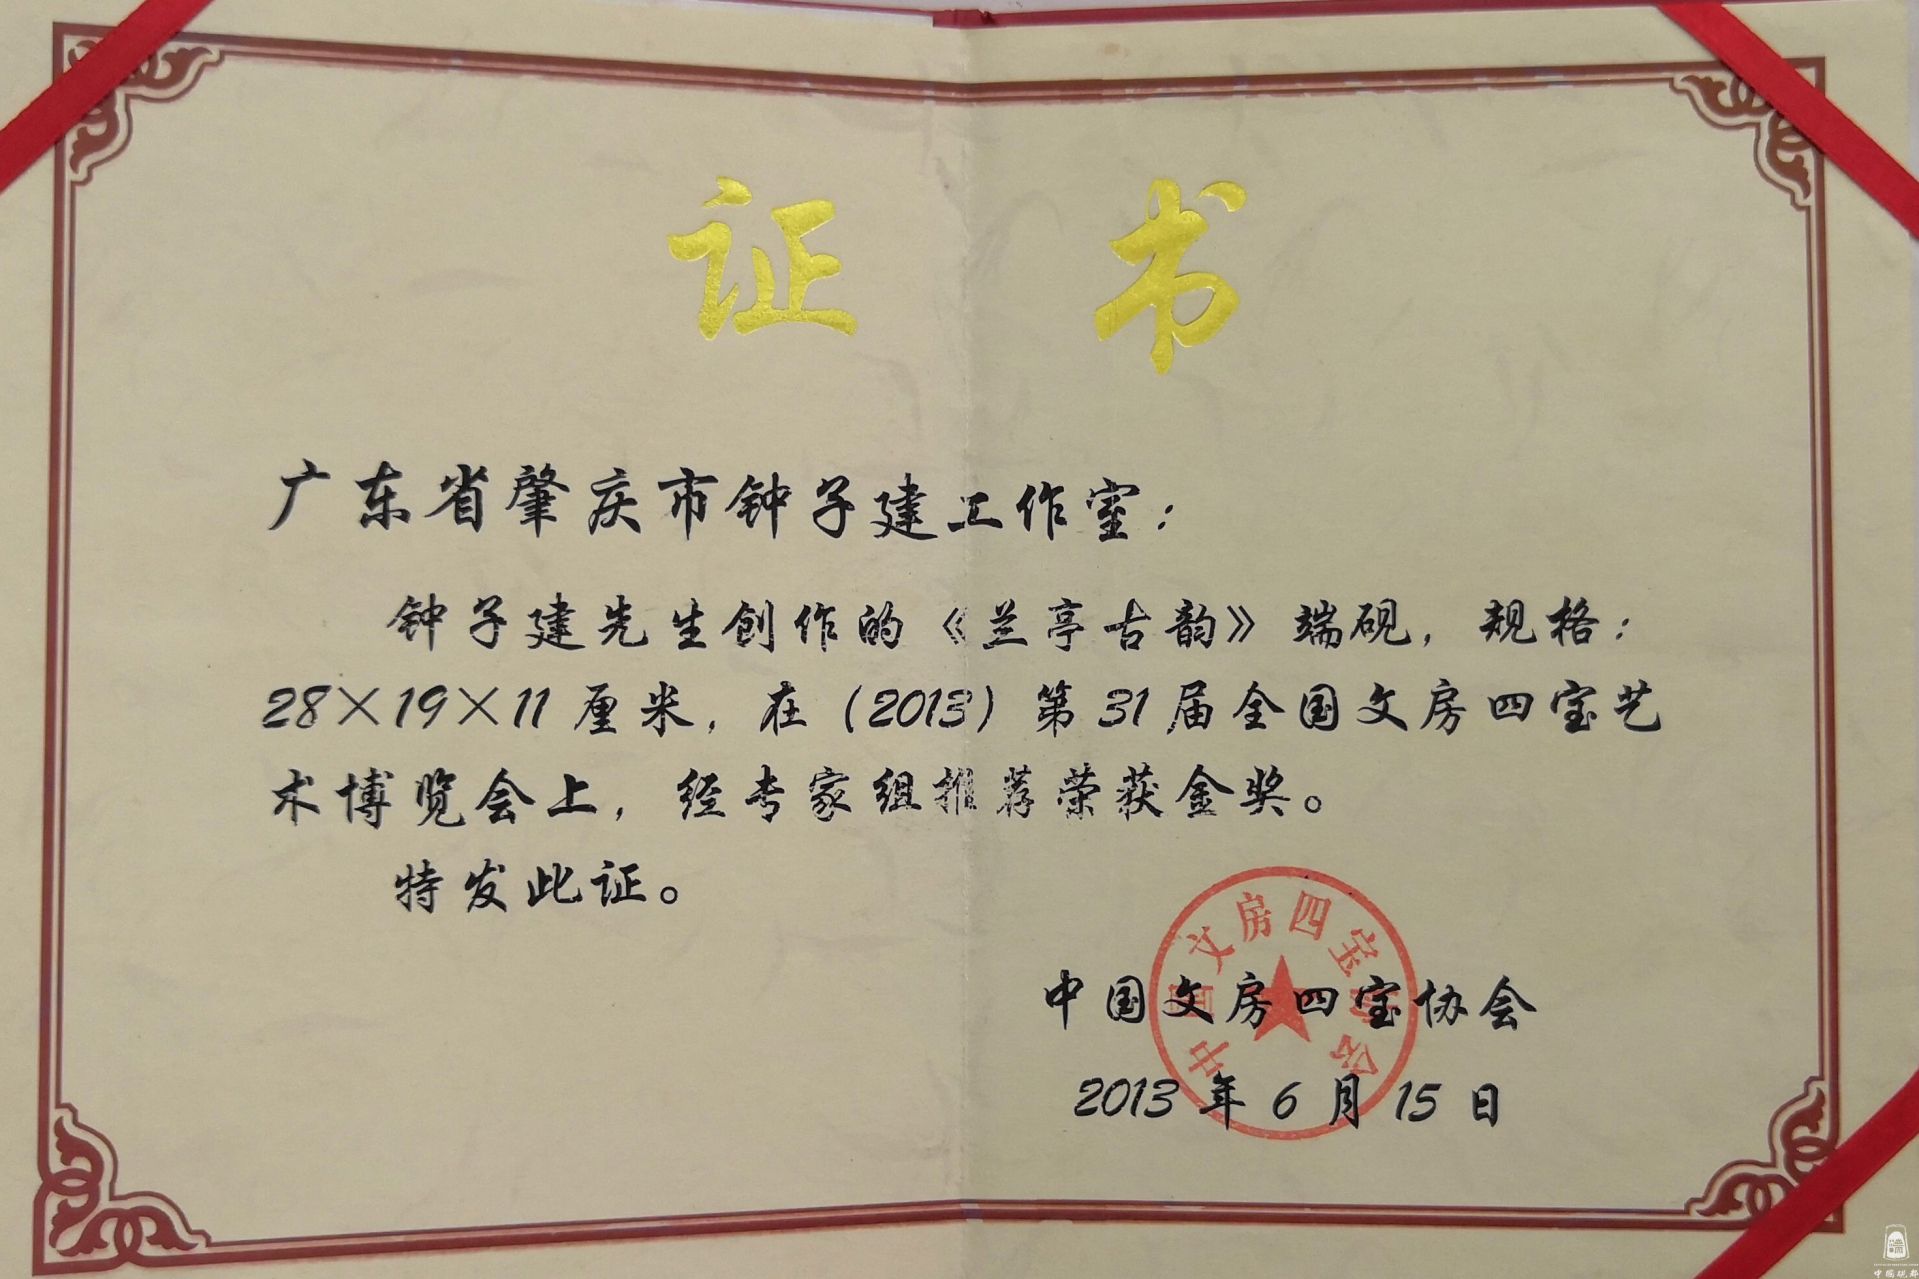 证书
广东省肇庆市钟子建工作室：
钟子建先生创作的《兰亭古韵》端砚，规格：
28×19×11厘米，在（2013）第31届全国文房四宝艺
术博览会上，经专家组推荐荣获金奖。
特发此证。
中国文房四宝协会
中国文房四宝协会
2013年6月15日
端
中国砚都